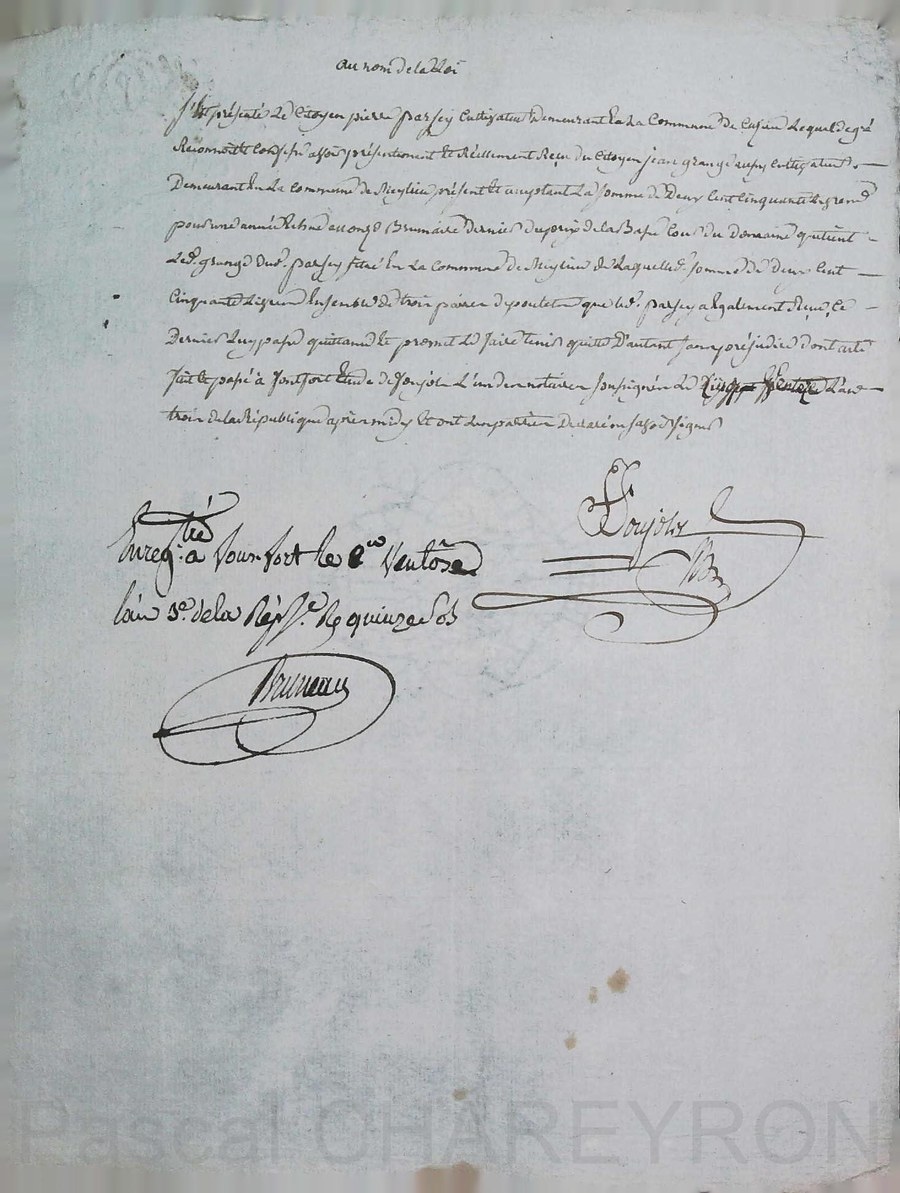 au nom de la Loi
S'est présenté Le Citoyen pierre parsey Cultivateur Demeurant En La Commune De Cusieu Lequel de gré
Reconnoit Et Confesse avoir présentement Et Réellement Reçu du Citoyen jean grange aussy Cultivateur
Demeurant En La Commune de présent Et acceptant La somme de Deux Cent Cinquante Livres
pour une année Echue au onze Brumaire Dernier du prix de la Ferme du Domaine que tient
Led. grange dud. parsey situé En La Commune de de Laquelle d. somme de deux Cent
Cinquante Livres Ensemble de trois paires de poulets que led. parsey a Également Reçu, Ce
Dernier quittance Et promet Le faire tenir quitte D'autant sans préjudice dont acte
fait Et passé à Montfort Étude de L'un des notaires soussignés Le L'an
trois de la République après midy Et ont Les parties Déclaré ne savoir signer
Enreg.tré à Montfort le Ventôse
l'an 3e. de la Rép. R. quinze Sols
Bruneau
Pascal CHAREYRON